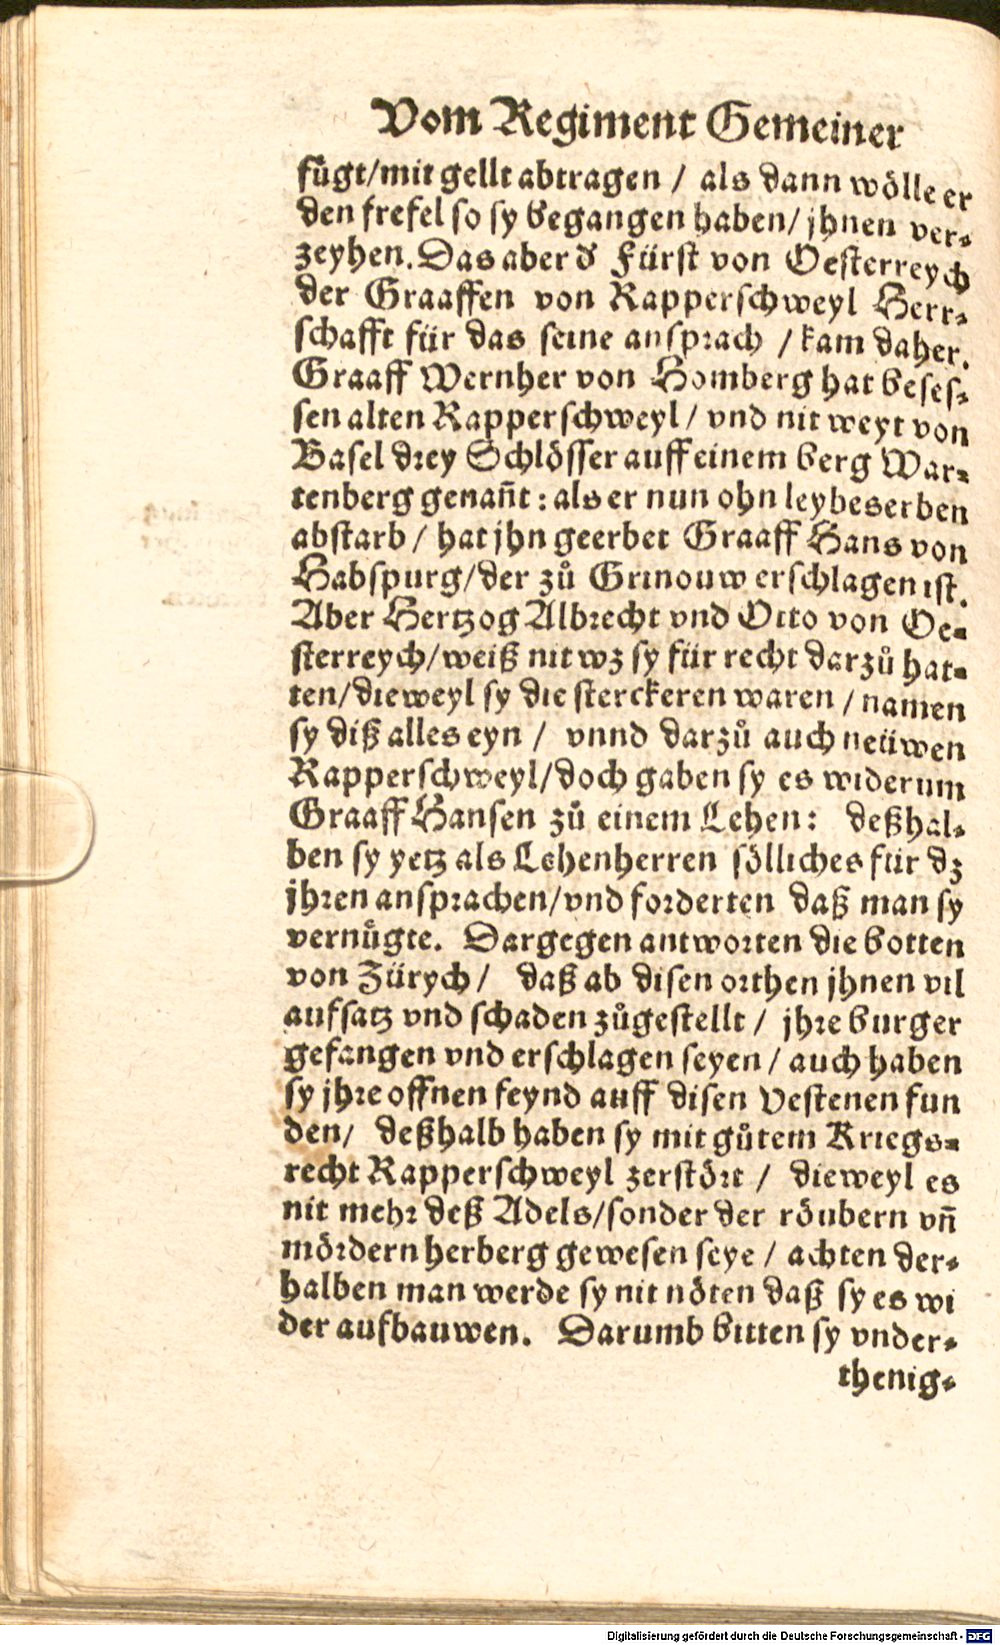 Vom Regiment Gemeiner
fuͤgt/mit gellt abtragen / als dann woͤlle er
den frefel so sy begangen haben/ jhnen ver⸗
zeyhen. Das aber dʼ Fürst von Oesterreych
der Graaffen von Rapperschweyl Herr⸗
schafft für das seine ansprach / kam daher.
Graaff Wernher von Homberg hat beses⸗
sen alten Rapperschweyl/ vnd nit weyt von
Basel drey Schloͤsser auff einem berg War⸗
tenberg genañt: als er nun ohn leybeserben
abstarb / hat jhn geerbet Graaff Hans von
Habspurg/der zuͦ Grinouw erschlagen ist.
Aber Hertzog Albrecht vnd Otto von Oe⸗
sterreych/weiß nit wz sy für recht darzuͦ hat⸗
ten/dieweyl sy die sterckeren waren / namen
sy diß alles eyn / vnnd darzuͦ auch neüwen
Rapperschweyl/doch gaben sy es widerum
Graaff Hansen zuͦ einem Lehen: deßhal⸗
ben sy yetz als Lehenherren soͤlliches für dz
jhren ansprachen/vnd forderten daß man sy
vernuͤgte. Dargegen antworten die botten
von Zürych / daß ab disen orthen jhnen vil
aufsatz vnd schaden zuͦgestellt / jhre burger
gefangen vnd erschlagen seyen / auch haben
sy jhre offnen feynd auff disen Vestenen fun
den/ deßhalb haben sy mit guͦtem Kriegs⸗
recht Rapperschweyl zerstoͤrt / dieweyl es
nit mehr deß Adels/sonder der roͤubern vñ
moͤrdern herberg gewesen seye / achten der⸗
halben man werde sy nit noͤten daß sy es wi
der aufbauwen. Darumb bitten sy vnder⸗
thenig⸗
Digitalisierung gefördert durch die Deutsche Forschungsgemeinschaft - DFG